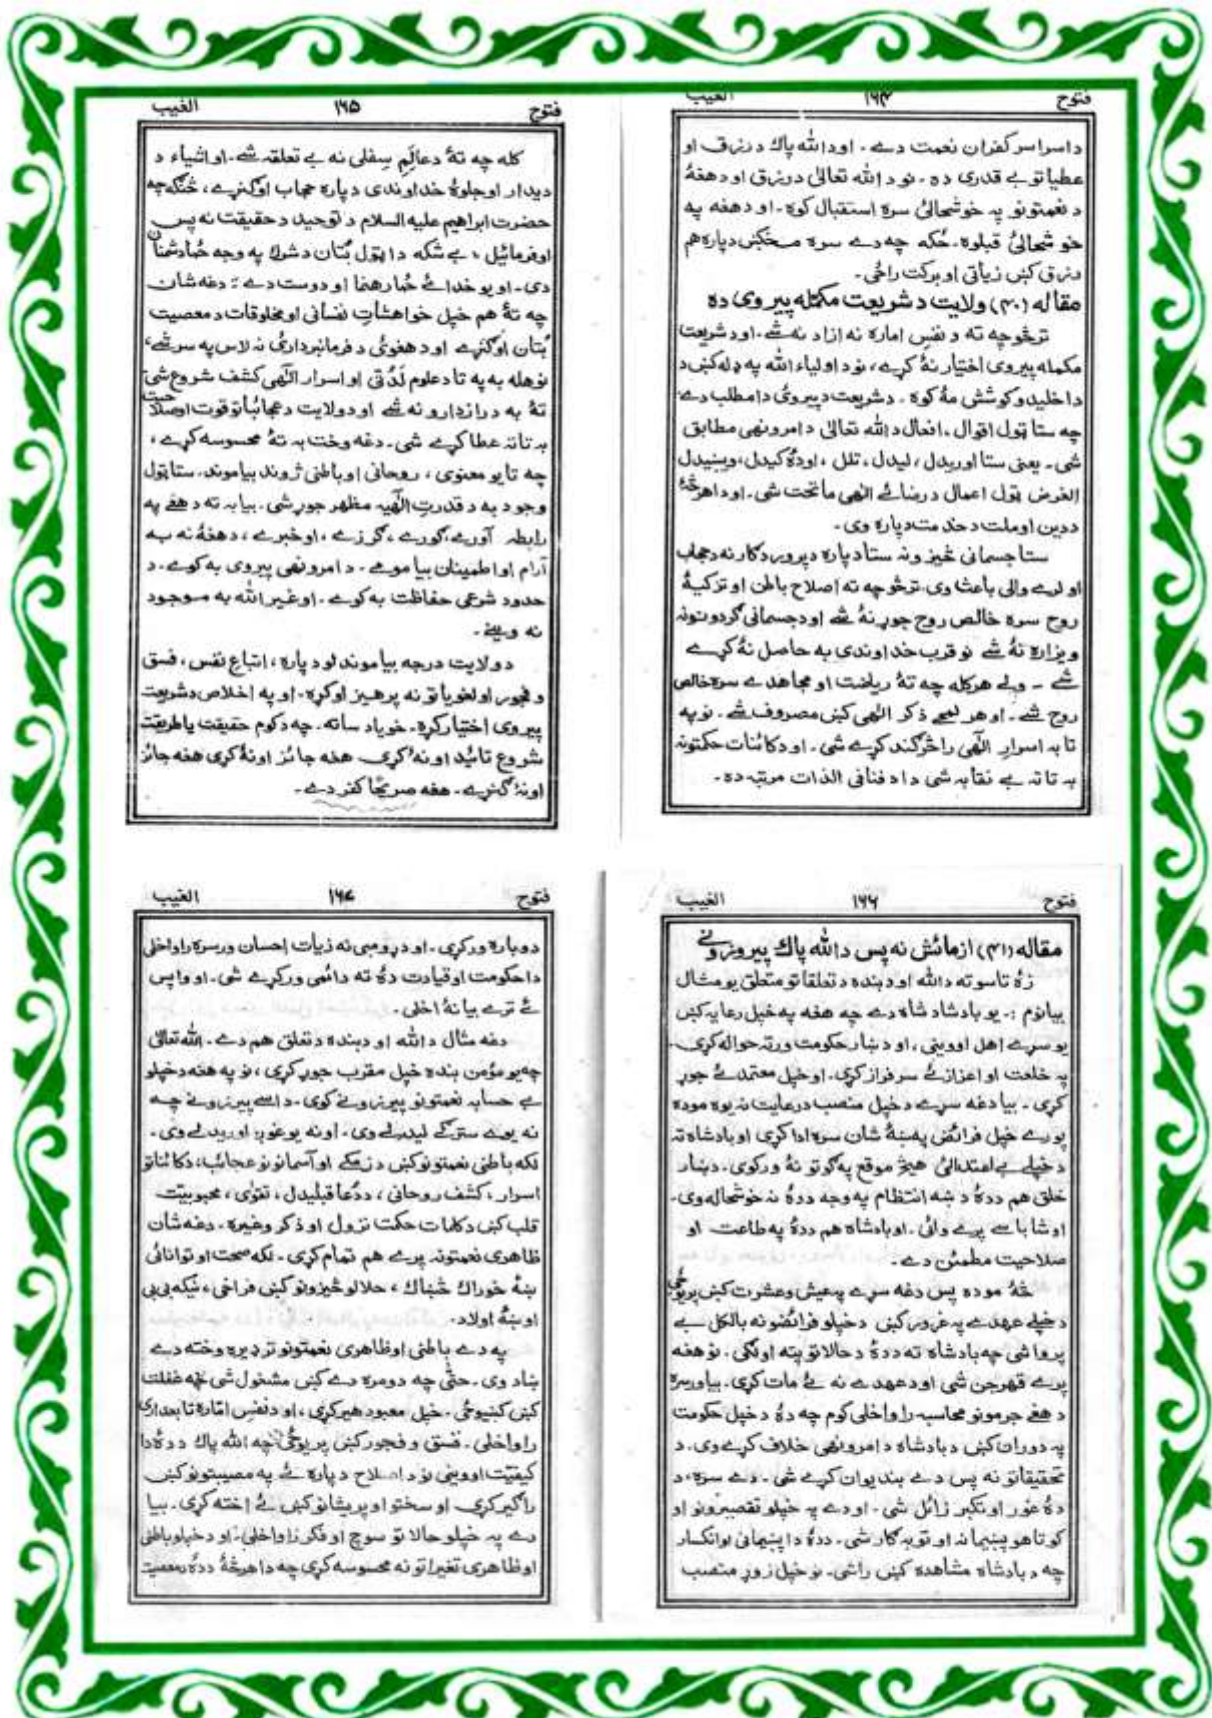 فتوح ۱۶۴ الغیب
داسراسر کفران نعمت دے۔ اودالله پاك د رزق او
عطیاتو بے قدری ده۔ نو د الله تعالیٰ د رزق او د هغهٔ
د نعمتونو په خوشحالئ سره استقبال کوه۔ او د هغه په
خوشحالئ قبلوه۔ ځکه چه دے سره مخکښ دپاره هم
رزق کښ زیاتی او برکت راځی۔
مقاله (۴۰) ولایت د شریعت مکمله پیروی ده
ترڅو چه ته د نفس اماره نه ازاد نه شے۔ او د شریعت
مکمله پیروی اختیار نهٔ کړے، نو د اولیاء الله په ډله کښ د
داخلیدو کوشش مهٔ کوه۔ د شریعت د پیروئ دا مطلب دے
چه ستا ټول اقوال، افعال د الله تعالیٰ د امر و نهی مطابق
شی۔ یعنی ستا اوریدل، لیدل، تلل، اودهٔ کیدل، ویښیدل
الغرض ټول اعمال د رضائے الٰهی ماتحت شی۔ او دا هر څهٔ
د دین او ملت د خدمت دپاره وی۔
ستا جسمانی څیزونه ستا دپاره د پروردګار نه د حجاب
او لرے والی باعث وی ترڅو چه ته اصلاح باطن او تزکیهٔ
روح سره خالص روح جوړ نهٔ شے او د جسمانی ګردونونه
ویزاره نهٔ شے نو قرب خداوندی به حاصل نهٔ کړے
شے ۔ ولے هرکله چه تهٔ ریاضت او مجاهدے سره خالص
روح شے۔ او هر لمحے ذکر الٰهی کښ مصروف شے۔ نو په
تا به اسرار الٰهی راڅرګند کړے شی۔ او د کائنات حکمتونه
به تا ته بے نقابه شی دا د فنا فی الذات مرتبه ده۔
فتوح ۱۶۵ الغیب
کله چه تهٔ د عالَمِ سِفلی نه بے تعلقه شے۔ او اشیاء د
دیدار او جلوهٔ خداوندی دپاره حجاب اوګنړے، څنګه چه
حضرت ابراهیم علیه السلام د توحید د حقیقت نه پس
اوفرمائیل، بے شکه دا ټول بُتان د شرك په وجه ځما دشمنان
دی۔ او یو خدائے ځما رهنما او دوست دے ۔ دغه شان
چه تهٔ هم خپل خواهشاتِ نفسانی او مخلوقات د معصیت
بُتان اوګنړے او د هغوئ د فرمانبردارئ نه لاس په سر شے،
نو هله به په تا د علوم لَدُنی او اسرار الٰهی کشف شروع شی
تهٔ به د راز دارو نه شے او د ولایت د عجائباتو قوت او صلاحیت
به تا ته عطا کړے شی۔ دغه وخت به تهٔ محسوسه کړے،
چه تا یو معنوی، روحانی او باطنی ژوند بیاموند۔ ستا ټول
وجود به د قدرتِ الٰهیه مظهر جوړ شی۔ بیا به ته د هغے په
رابطه آورے، ګورے، ګرزے، او خبرے، د هغهٔ نه به
آرام او اطمینان بیامومے۔ د امر و نهی پیروی به کوے۔ د
حدود شرعی حفاظت به کوے۔ او غیر الله به موجود
نه وینے۔
د ولایت درجه بیاموندلو دپاره، اتباعِ نفس، فسق
و فجور او لغویاتو نه پرهیز اوکړه۔ او په اخلاص د شریعت
پیروی اختیار کړه۔ خو یاد ساته۔ چه د کوم حقیقت یا طریقت
شروع تائید او نهٔ کړی هغه جائز او نهٔ کړی هغه جائز
اونهٔ ګنړے۔ هغه صریحًا کفر دے۔
فتوح ۱۶۶ الغیب
مقاله (۴۱) ازمائش نه پس د الله پاك پیرزونے
زهٔ تاسو ته د الله او د بنده د تعلقاتو متعلق یو مثال
بیانوم :۔ یو بادشاه دے چه هغه په خپل رعایه کښ
یو سړے اهل اووینی، او د ښار حکومت ورته حواله کړی۔
په خلعت او اعزاز ئے سرفراز کړی۔ او خپل معتمد ئے جوړ
کړی۔ بیا دغه سړے د خپل منصب د رعایت نه یوه موده
پورے خپل فرائض په ښهٔ شان سره ادا کړی او بادشاه ته
د خپلے بے اعتدالئ هیڅ موقع په ګوتو نهٔ ورکوی۔ د ښار
خلق هم د دهٔ د ښه انتظام په وجه د دهٔ نه خوشحاله وی۔
او شاباسے پرے وائی۔ او بادشاه هم د دهٔ په طاعت او
صلاحیت مطمئن دے۔
څهٔ موده پس دغه سړے په عیش و عشرت کښ پریوځی
د خپلے عهدے په غرور کښ د خپلو فرائضو نه بالکل بے
پروا شی چه بادشاه ته د دهٔ د حالاتو پته اولګی۔ نو هغه
پرے قهرجن شی او د عهدے نه ئے مات کړی۔ بیا ورسره
د هغے جرمونو محاسبه راواخلی کوم چه دهٔ د خپل حکومت
په دوران کښ د بادشاه د امر و نهی خلاف کړے وی۔ د
تحقیقاتو نه پس دے بندیوان کړے شی۔ دے سره، د
دهٔ غرور او تکبر زائل شی۔ او دے په خپلو تقصیرونو او
کوتاهو پښیمانه او توبه ګار شی۔ د دهٔ دا پښیمانی او انکسار
چه د بادشاه مشاهده کښ راشی۔ نو خپل زوړ منصب
فتوح ۱۶۷ الغیب
دوباره ورکړی۔ او د ړومبی نه زیات اِحسان ورسره راواخلی
دا حکومت او قیادت دهٔ ته دائمی ورکړے شی۔ او واپس
ئے ترے بیا نهٔ اخلی۔
دغه مثال د الله او د بنده د تعلق هم دے۔ الله تعالیٰ
چه یو مؤمن بنده خپل مقرب جوړ کړی، نو په هغه د خپلو
بے حسابه نعمتونو پیرزونے کوی۔ داسے پیرزونے چه
نه یوے سترګے لیدلے وی۔ او نه یو غوږ اوریدلے وی۔
لکه باطنی نعمتونو کښ د زمکے او آسمانونو عجائب، د کائناتو
اسرار، کشف روحانی، د دُعا قبلیدل، تقوٰی، محبوبیّت
قلب کښ د کلمات حکمت نزول او ذکر وغیره۔ دغه شان
ظاهری نعمتونه پرے هم تمام کړی۔ لکه صحت او توانائی
ښهٔ خوراك څښاك، حلالو څیزونو کښ فراخی، نیکه بی بی
او ښهٔ اولاد۔
په دے باطنی او ظاهری نعمتونو تر ډیره وخته دے
ښاد وی۔ حتٰی چه دومره دے کښ مشغول شی چه غفلت
کښ کینیوځی۔ خپل معبود هیر کړی، او د نفس امّاره تابعداری
راواخلی۔ فسق و فجور کښ پریوځی چه الله پاك د دهٔ دا
کیفیّت اووینی نو د اصلاح دپاره ئے په مصیبتونو کښ
راګیر کړی او سختو او پریشانو کښ ئے اخته کړی۔ بیا
دے په خپلو حالاتو سوچ او فکر راواخلی۔ او د خپلو باطنی
او ظاهری تغیراتو نه محسوسه کړی چه دا هر څهٔ د دهٔ د معصیت